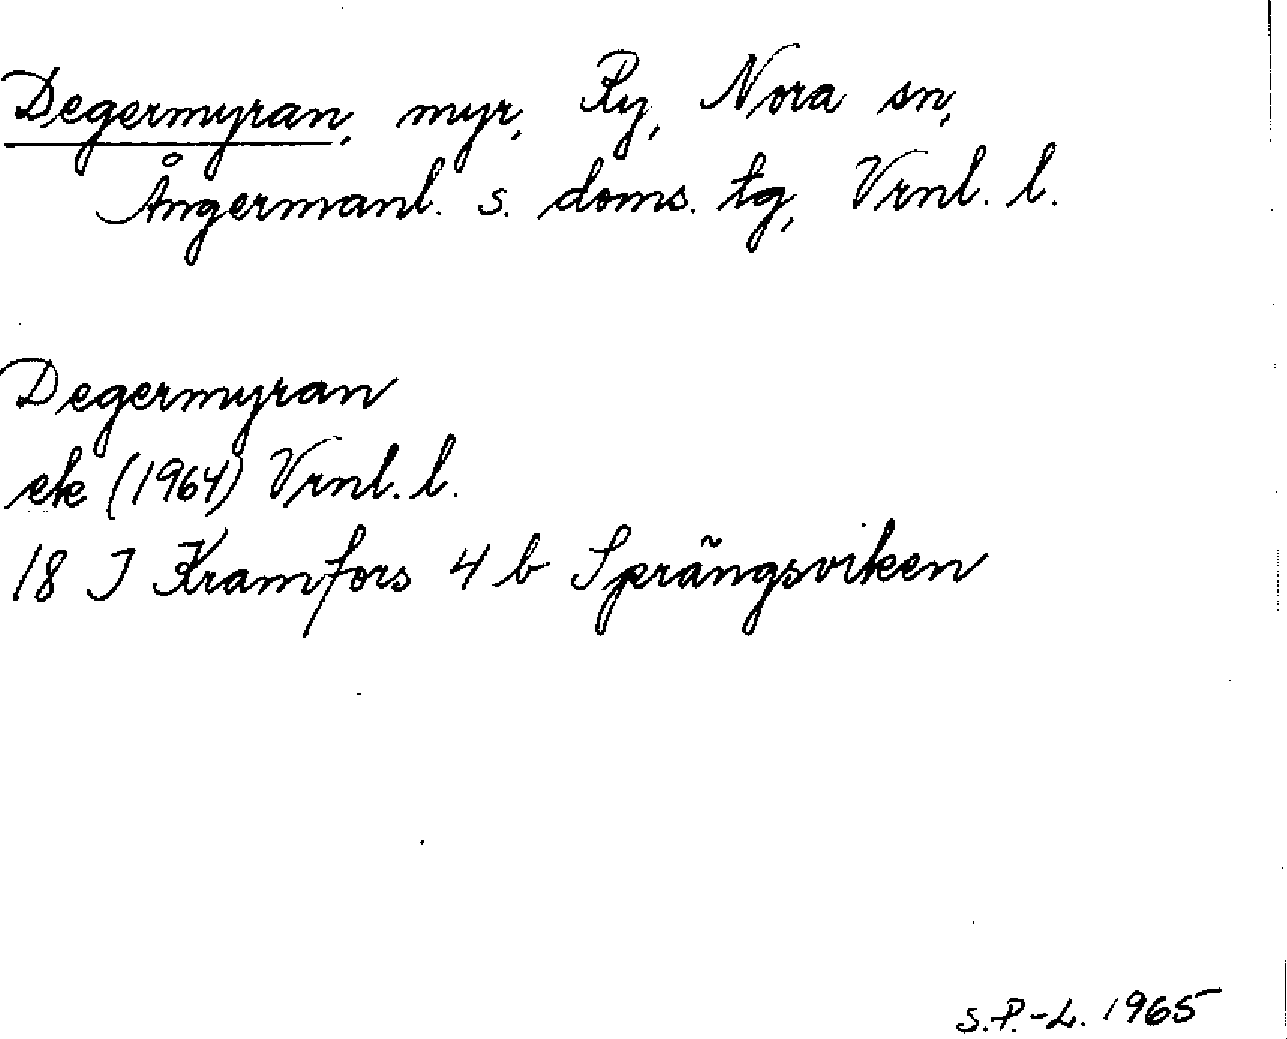 Degermyran, myr, Ry, Nora sn,
Ångermanl. s. doms. tg, Vrnl. l.
Degermyran
ek (1964) Vrnl. l.
18 I Kramfors 4 b Sprängsviken
S.P.-L. 1965